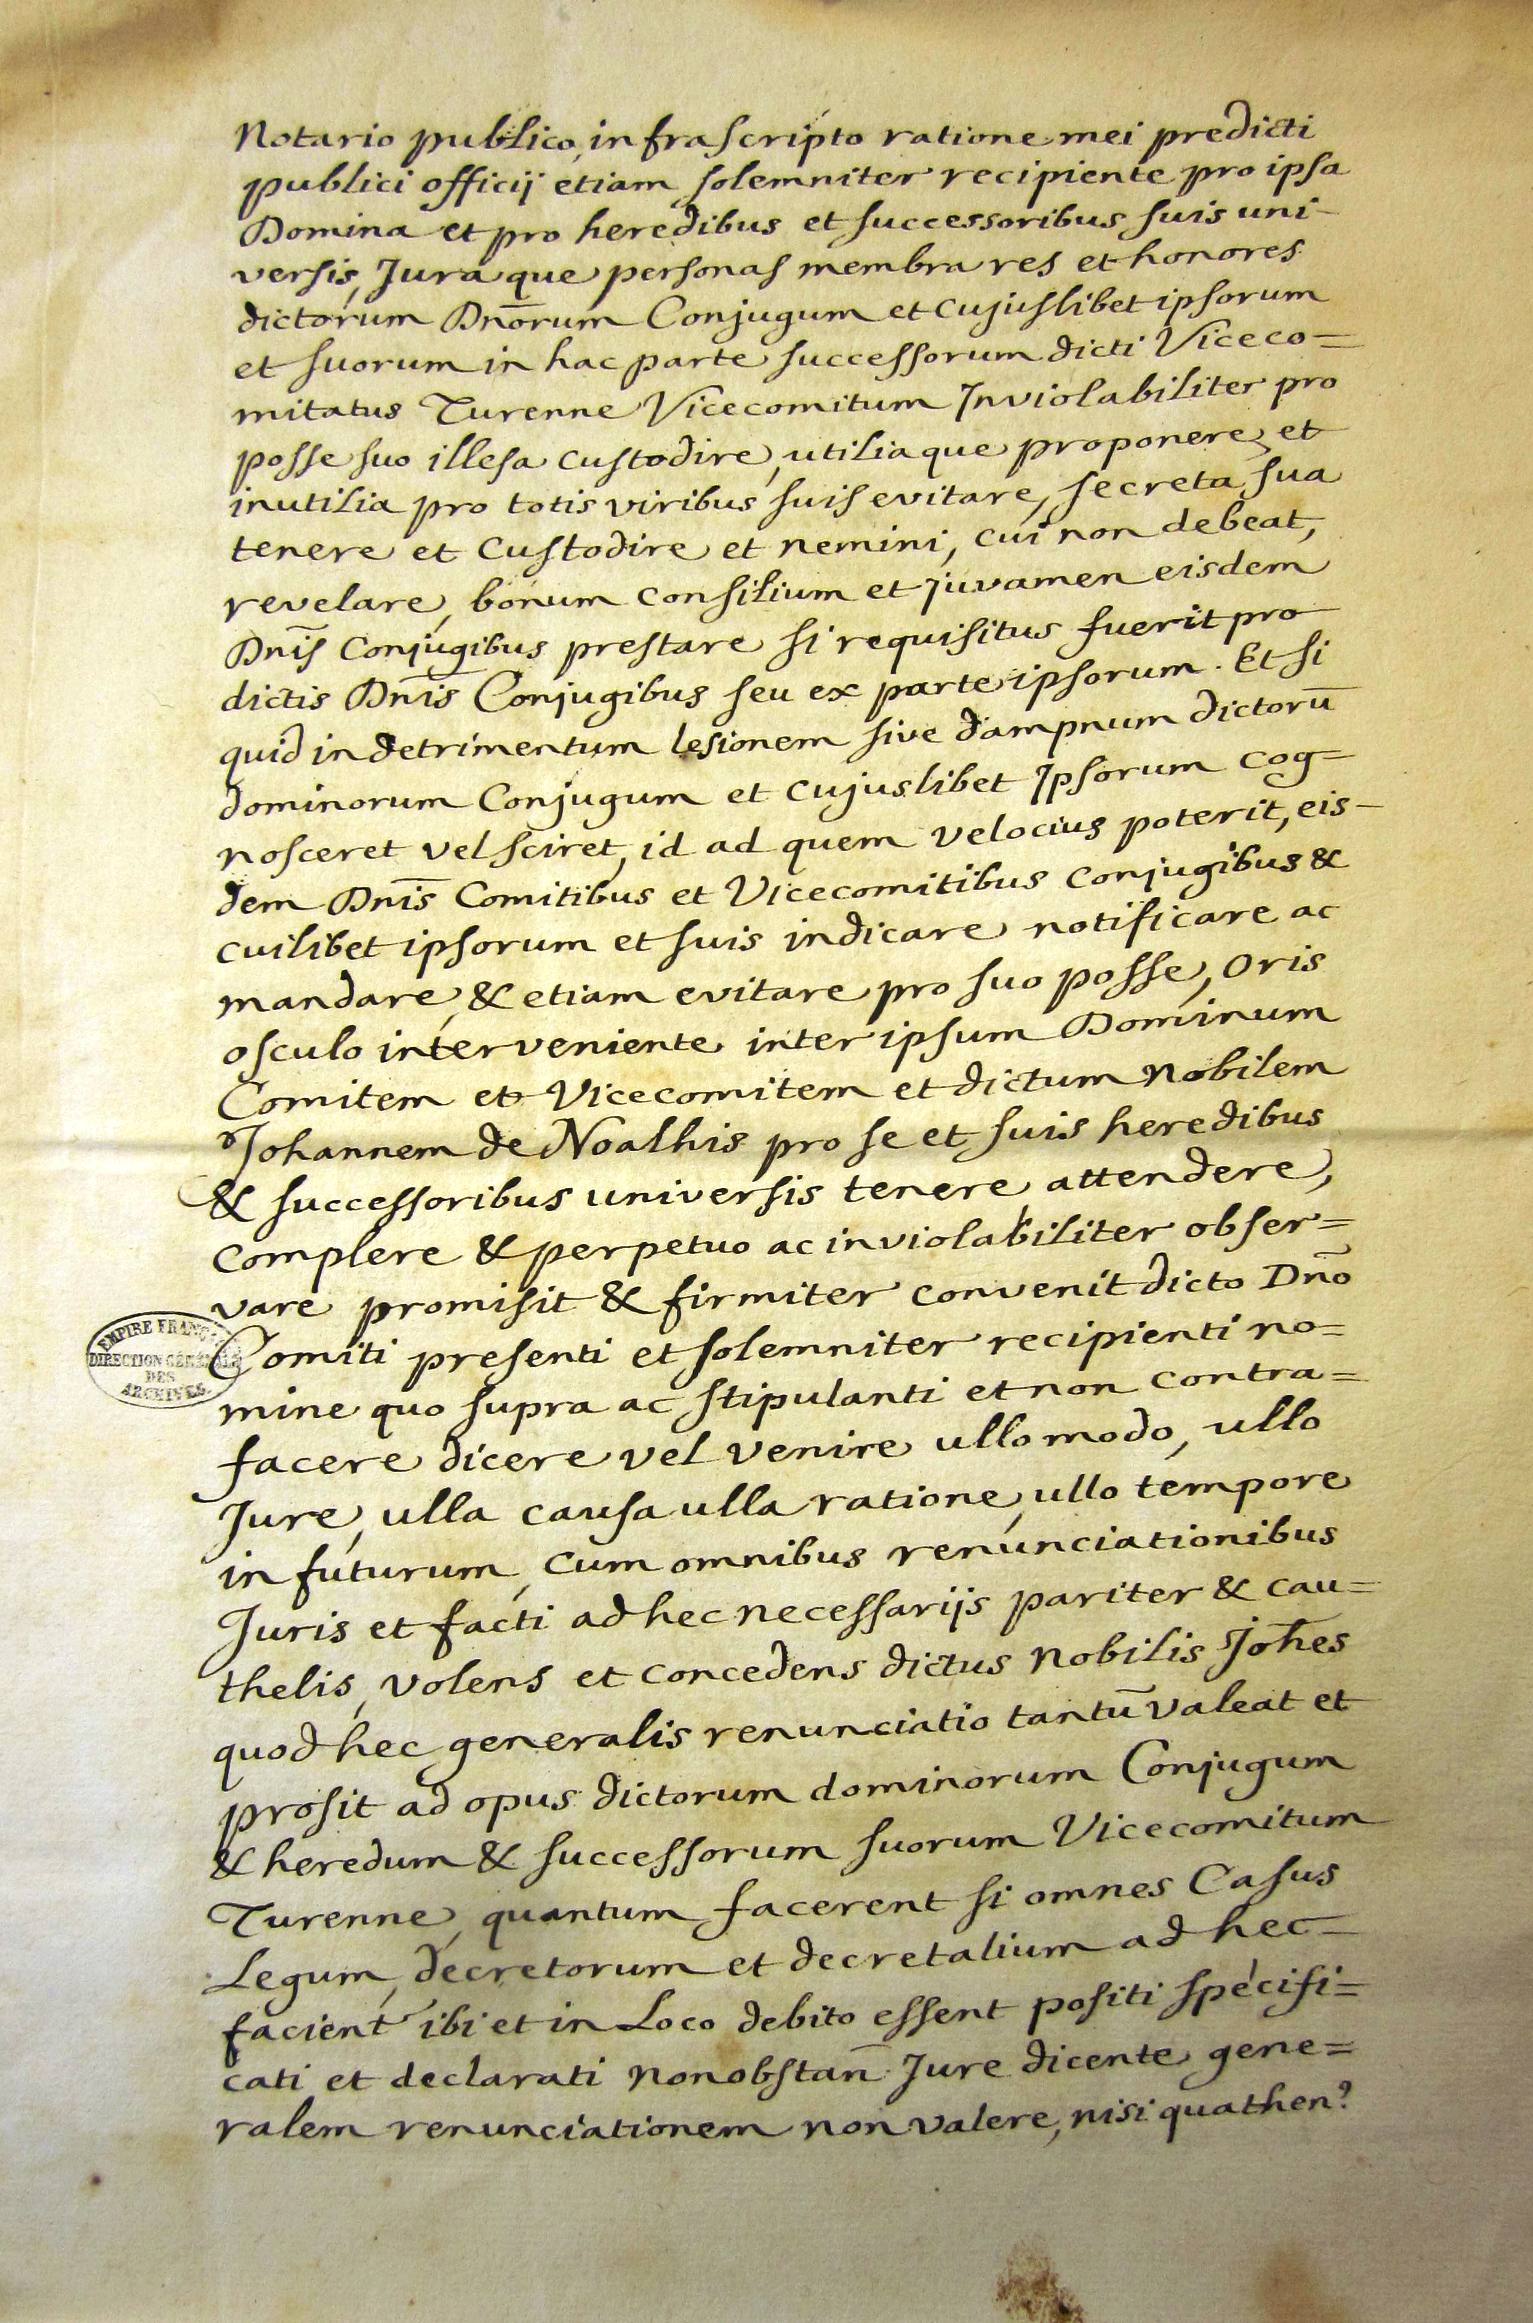 Notario publico, infrascripto ratione mei predicti
publici officij etiam solemniter recipiente pro ipsa
Domina et pro heredibus et successoribus suis uni-
versis, Jura que personas membra res et honores
dictorum Dnōrum Conjugum et cujuslibet ipsorum
et suorum in hac parte successorum dicti Viceco=
mitatus Turenne Vicecomitum Inviolabiliter pro
posse suo illesa custodire, utilia que proponere et
inutilia pro totis viribus suis evitare, secreta sua
tenere et custodire et nemini, cui non debeat,
revelare, bonum consilium et juvamen eisdem
Dnīs Conjugibus prestare si requisitus fuerit pro
dictis Dnīs Conjugibus seu ex parte ipsorum. Et si
quid in detrimentum lesionem sive dampnum dictorū
dominorum Conjugum et cujuslibet Ipsorum cog=
nosceret vel sciret, id ad quem velocius poterit, eis-
dem Dnīs Comitibus et Vicecomitibus conjugibus &
cuilibet ipsorum et suis indicare notificare ac
mandare, & etiam evitare pro suo posse, Oris
osculo interveniente inter ipsum Dominum
Comitem et Vicecomitem et dictum Nobilem
Johannem de Noalhis pro se et suis heredibus
& successoribus universis tenere attendere,
complere & perpetuo ac inviolabiliter obser=
vare promisit & firmiter convenit dicto Dnō
EMPIRE FRANÇ
DIRECTION GÉNÉRALE
DES
ARCHIVES
Comiti presenti et solemniter recipienti no=
mine quo supra ac stipulanti et non contra=
facere dicere vel venire ullo modo, ullo
Jure, ulla causa ulla ratione, ullo tempore
in futurum, cum omnibus renunciationibus
Juris et facti ad hec necessarijs pariter & cau=
thelis, volens et concedens dictus Nobilis Joh̄es
quod hec generalis renunciatio tantū valeat et
prosit ad opus dictorum dominorum Conjugum
& heredum & successorum suorum Vicecomitum
Turenne, quantum facerent si omnes Casus
Legum, decretorum et decretalium ad hec
facient ibi et in Loco debito essent positi specifi=
cati et declarati nonobstan̄ Jure dicente gene=
ralem renunciationem non valere, nisi quathen?